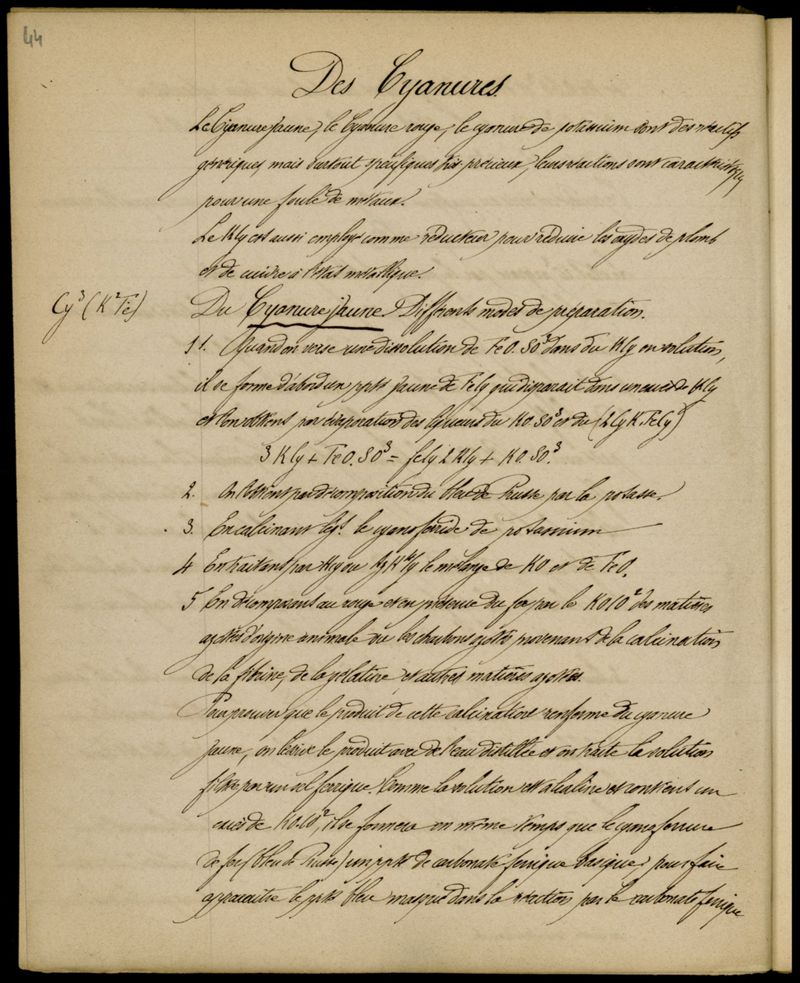 44
Des Cyanures.
Le Cyanure jaune, le Cyanure rouge, le cyanure de potassium sont des réactifs
génériques, mais surtout spécifiques très précieux, leurs réactions sont caractéristiq
pour une foule de métaux.
Le KCy est aussi employé comme réducteur pour réduire les oxydes de plomb
et de cuivre à l'état métallique.
Cy³ (K² Fe)
Du Cyanure jaune. Différents modes de préparation.
1. Quand on verse une dissolution de FeO. SO³ dans du KCy en solution,
il se forme d'abord un ppté jaune de FeCy qui disparait dans un excès de KCy
et l'on obtient par évaporation des liqueurs du KO. SO³ et du (2 Cy K. FeCy)
3 KCy + FeO. SO³ = feCy 2 KCy + KO. SO.³
2. On l'obtient par décomposition du bleu de Prusse par la potasse.
3. En calcinant le cyanoferride de potassium
4 En traitant par HCy ou le mélange de KO et de FeO.
5 En décomposant au rouge et en présence du fer par le KOCO² des matières
azotées d'origine animale ou les charbons azotés provenant de la calcination
de la fibrine, de la gélatine, et autres matières azotées.
Pour prouver que le produit de cette calcination renferme du cyanure
jaune, on lessive le produit avec de l'eau distillée et on traite la solution
filtrée par un sel ferrique. Comme la solution est alcaline et contient un
excès de KO.CO², il se formera en même temps que le cyanoferrure
de fer (bleu de Prusse) un ppté de carbonate ferrique basique; pour faire
apparaitre le ppté bleu masqué dans la réaction par le carbonate ferrique